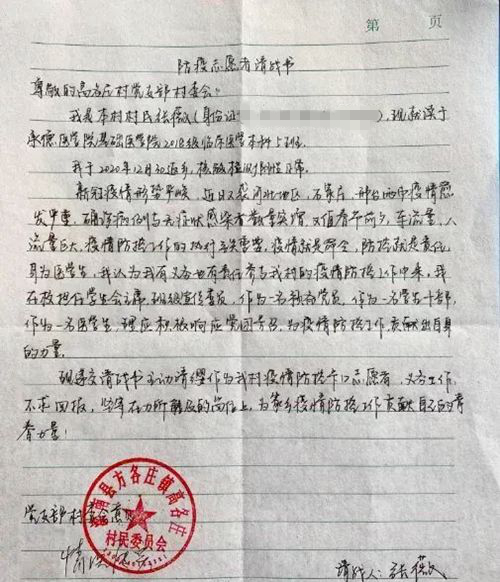 第 页
防疫志愿者请战书
尊敬的高各庄村党支部村委会:
我是本村村民张薇(身份证),现就读于
承德医学院基础医学院2018级临床医学本科5班.
我于2020年12月30返乡,核酸检测阴性正常.
新冠疫情形势严峻,近日又袭河北地区,石家庄、邢台两市疫情愈
发严重,确诊病例与无症状感染者数量突增,又值春节前夕,车流量,人
流量巨大,疫情防控工作的执行至关重要,疫情就是命令,防控就是责任,
身为医学生,我认为我有义务也有责任参与我村的疫情防控工作中来,我
在校担任学生会主席 班级宣传委员,作为一名预备党员,作为一名学生干部,
作为一名医学生,理应积极响应党团号召,为疫情防控工作,贡献出自身
的力量.
现递交请战书主动请缨作为我村疫情防控卡口志愿者,义务工作,
不求回报,坚守在力所能及的岗位上,为家乡疫情防控工作贡献自己的青
春力量!
党支部村委会意见:
情况属实
南县方各庄镇高各庄
村民委员会
请战人:张薇